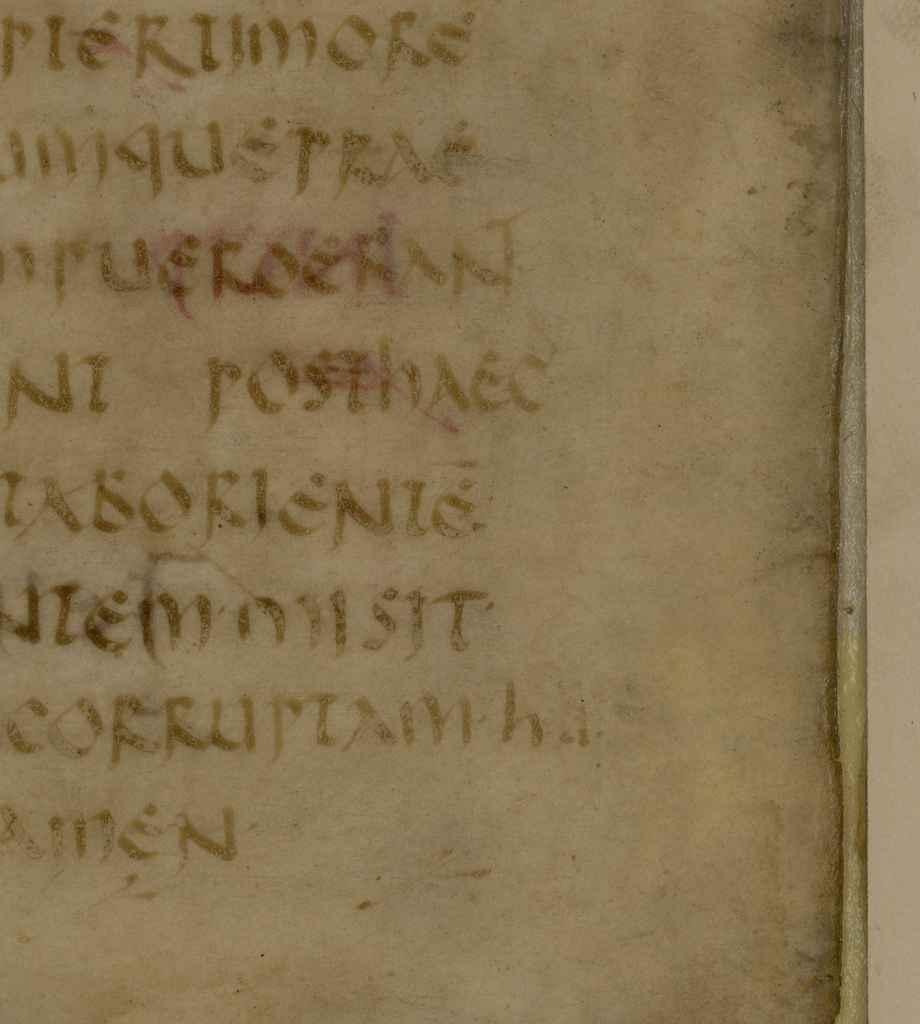 PTERTIMORE
UMQUEPRAE
MPUEROERANT
NT POSTHAEC
TABORIENTĒ
NTEM·MISIT·
CORRUPTAM·
AMEN